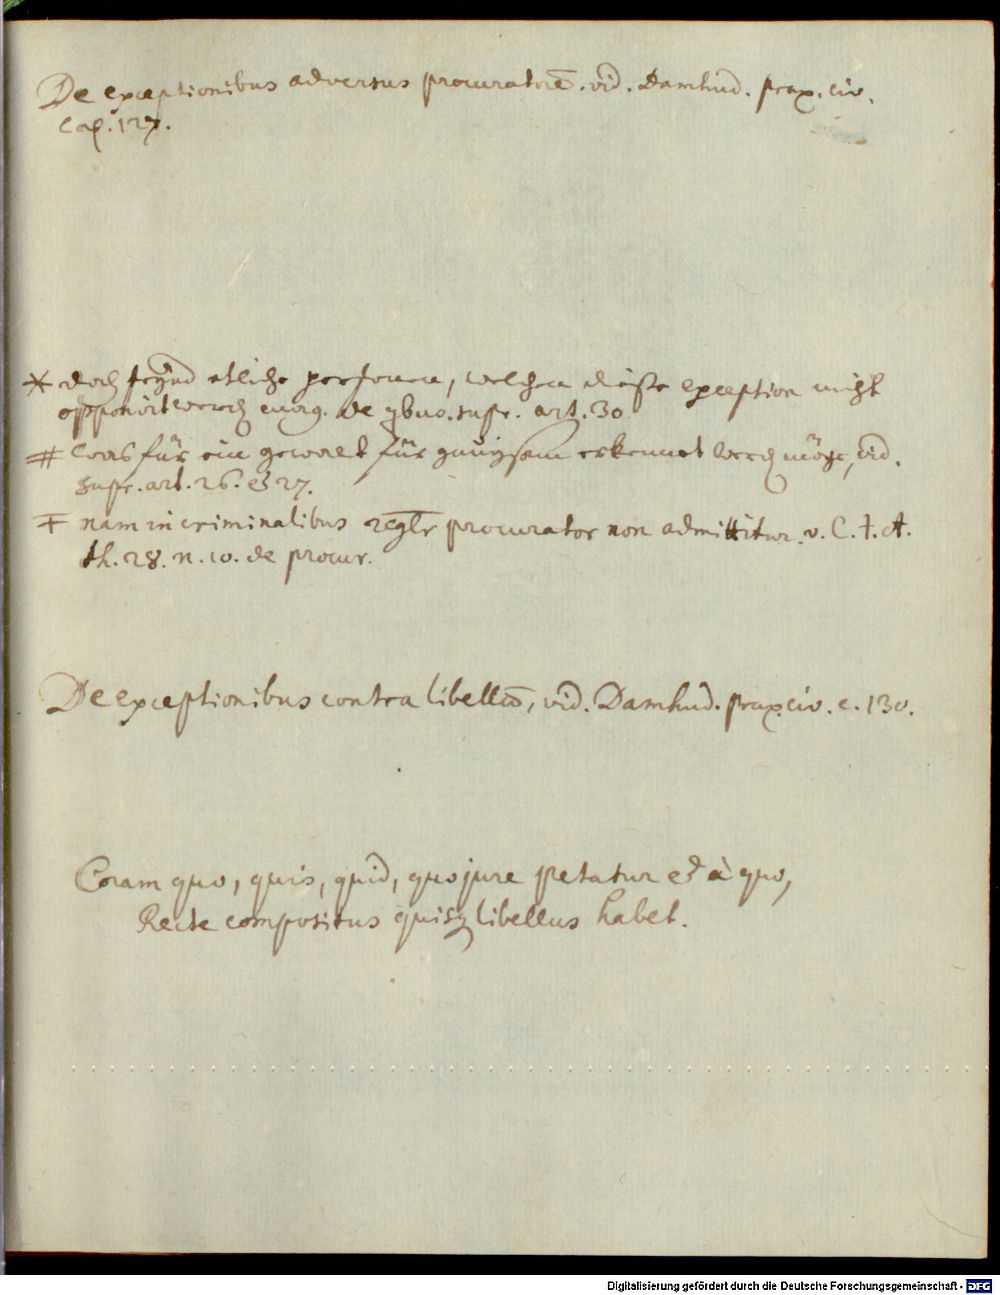 De exceptionibus adversus procuratorē. vid. Damhud. prax. civ.
Cap. 127.
* doch seynd etliche personen, welchen diese exception nicht
opponirt werdē mag. de qbus. supr. art. 30.
# was für ein gewalt für gnugsam erkennet werdē möge, vid.
supr. art. 26. et 27.
∓ nam in criminalibus reglr procurator non admittitur. v. C. t. A.
th. 28. n. 10. de procur.
De exceptionibus contra libellū, vid. Damhud. prax. civ. c. 130.
Coram quo, quis, quid, quo jure petatur et à quo,
Recte compositus quisq libellus habet.
Digitalisierung gefördert durch die Deutsche Forschungsgemeinschaft - DFG